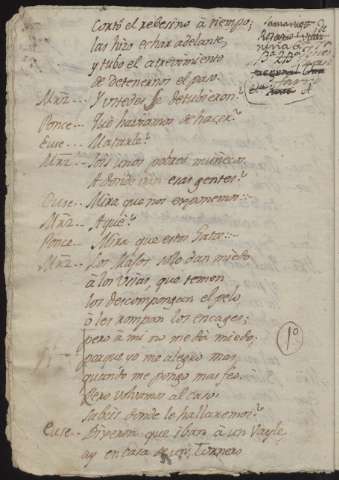 Cortó el rebesino à tiempo,
las hizo echar adelante,
y tubo el atrevimiento
de detenernos el paso.
Mrñz... Y ustedes se detubieron?
Ponce... Què haviamos de hacer?
Euse... Matarle?
Mrñz... Sois unos pobres muñecos.
A donde iban esas gentes?
Euse... Mira que nos exponemos..
Mrñz... A què?
Ponce... Mira que estos Gata..
Mrñz... Los Malos solo dan miedo
à los Usias, que temen
los descompongan el pelo,
ò les rompan los encages;
pero à mi no me dàn miedo,
porque yo me alegro mas,
quando me pongo mas feo.
Pero volvamos al caso.
Sabeis donde le hallaremos?
Euse... Dijeron que iban à un Vayle,
ay en casa de un Tornero
1º